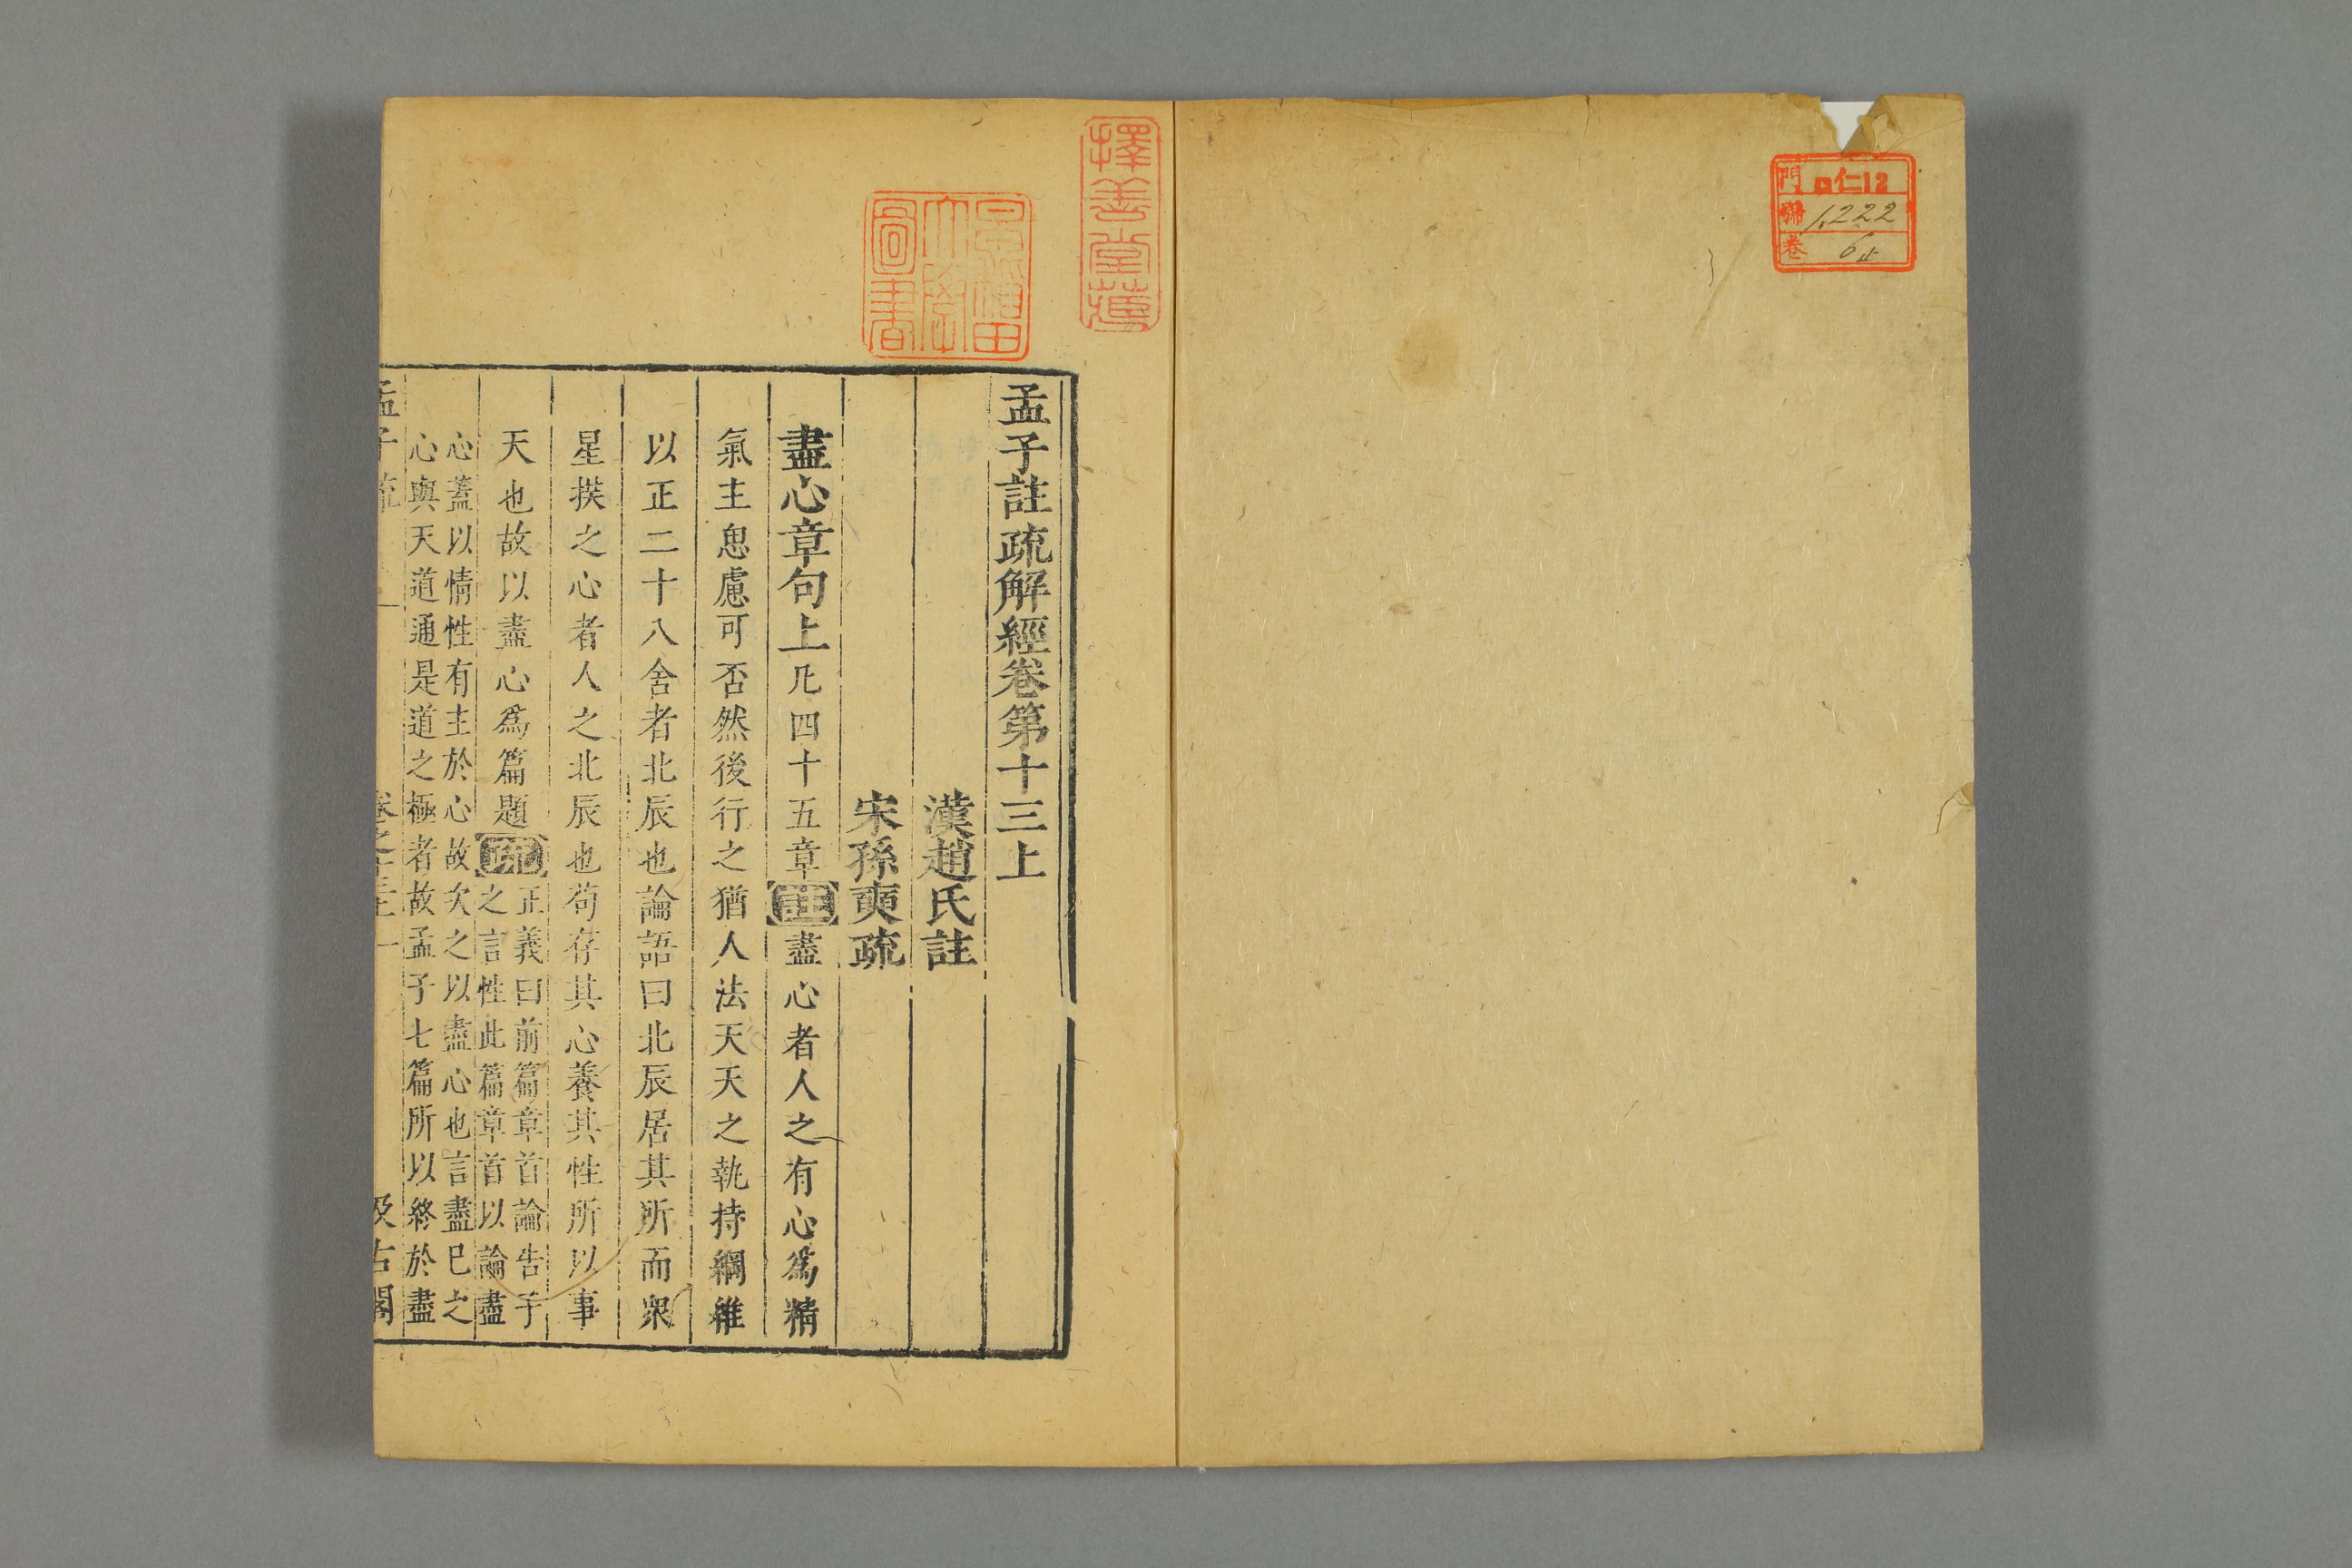 門 ロ仁12
號 1,222
卷 6止
擇善堂藏
早稲田
大學
圖書
孟子註疏解經卷第十三上
漢趙氏註
宋孫奭疏
盡心章句上凡四十五章註盡心者人之有心爲精
氣主思慮可否然後行之猶人法天天之執持綱維
以正二十八舍者北辰也論語曰北辰居其所而衆
星拱之心者人之北辰也苟存其心養其性所以事
天也故以盡心爲篇題疏正義曰前篇章首論告子
之言性此篇章首以論盡
心蓋以情性有主於心故次之以盡心也言盡巳之
心與天道通是道之極者故孟子七篇所以終於盡
孟子疏 卷之十三上 一 汲古閣